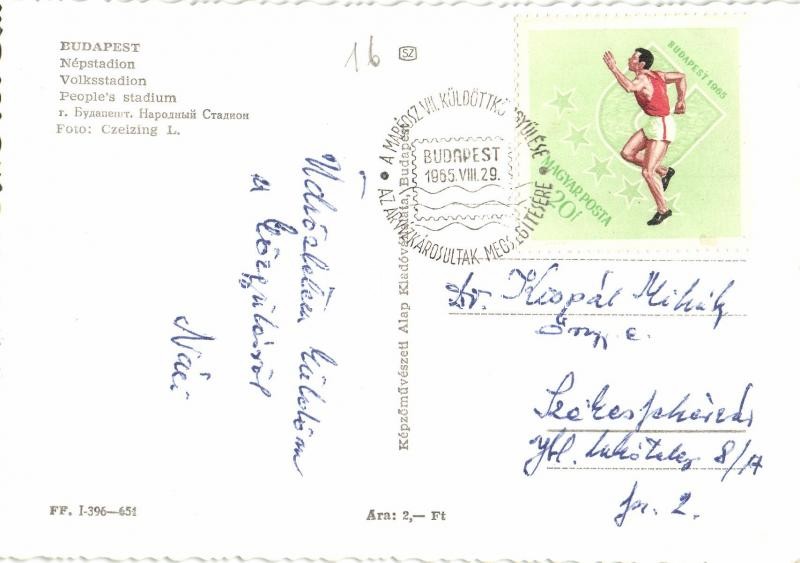 BUDAPEST
Népstadion
Volksstadion
People's stadium
г. Будапешт. Народный Стадион
Foto: Czeizing L.
16
SZ
A MABÉOSZ VII. KÜLDÖTTKÖZGYŰLÉSE
BUDAPEST
1965.VIII.29.
AZ ÁRVÍZKÁROSULTAK MEGSEGÍTÉSÉRE
BUDAPEST 1965
MAGYAR POSTA
20f
Üdvözletem küldöm
a közgyűlésről
Náci
Képzőművészeti Alap Kiadóvállalata, Budapest
Dr. Kispál Mihály
Székesfehérvár
Ybl lakótelep 8/A
fsz. 2.
FF. I-396—651
Ára: 2,— Ft